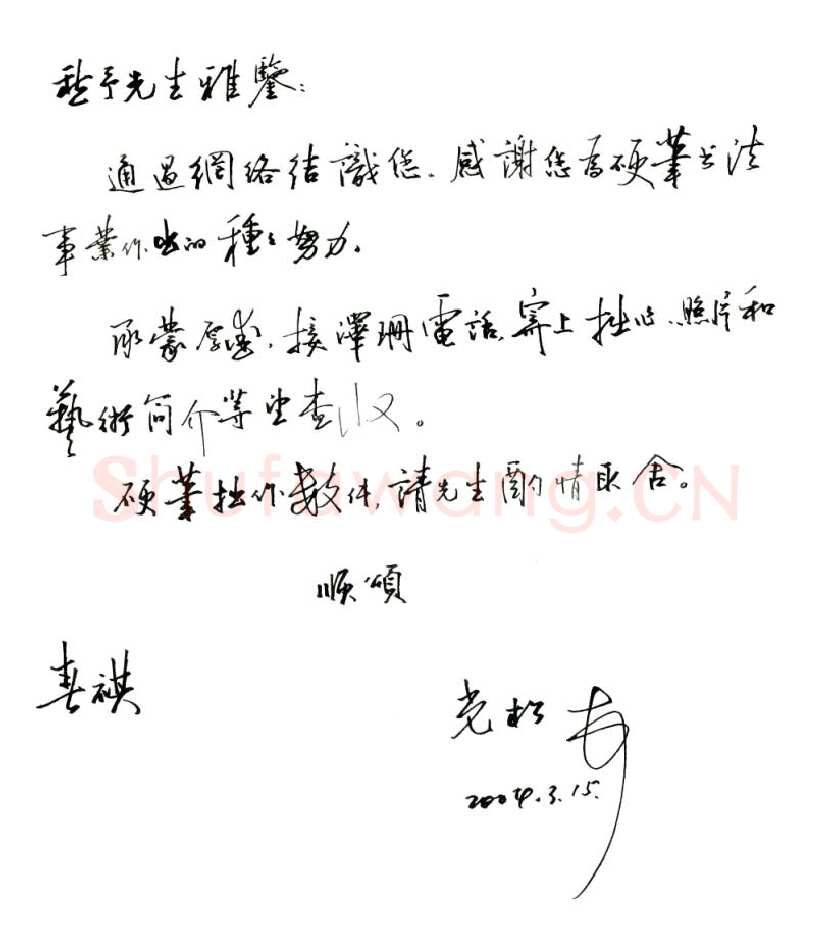 愁予先生雅鑒:
通過網絡結識您.感謝您為硬筆书法
事業作出的種々努力.
承蒙厚愛,接澤珊電話,寄上拙作、照片和
藝術简介等望查收。
硬筆拙作数件,請先生酌情取舍。
順頌
春祺
松
2004.3.15.
Shufawang.CN